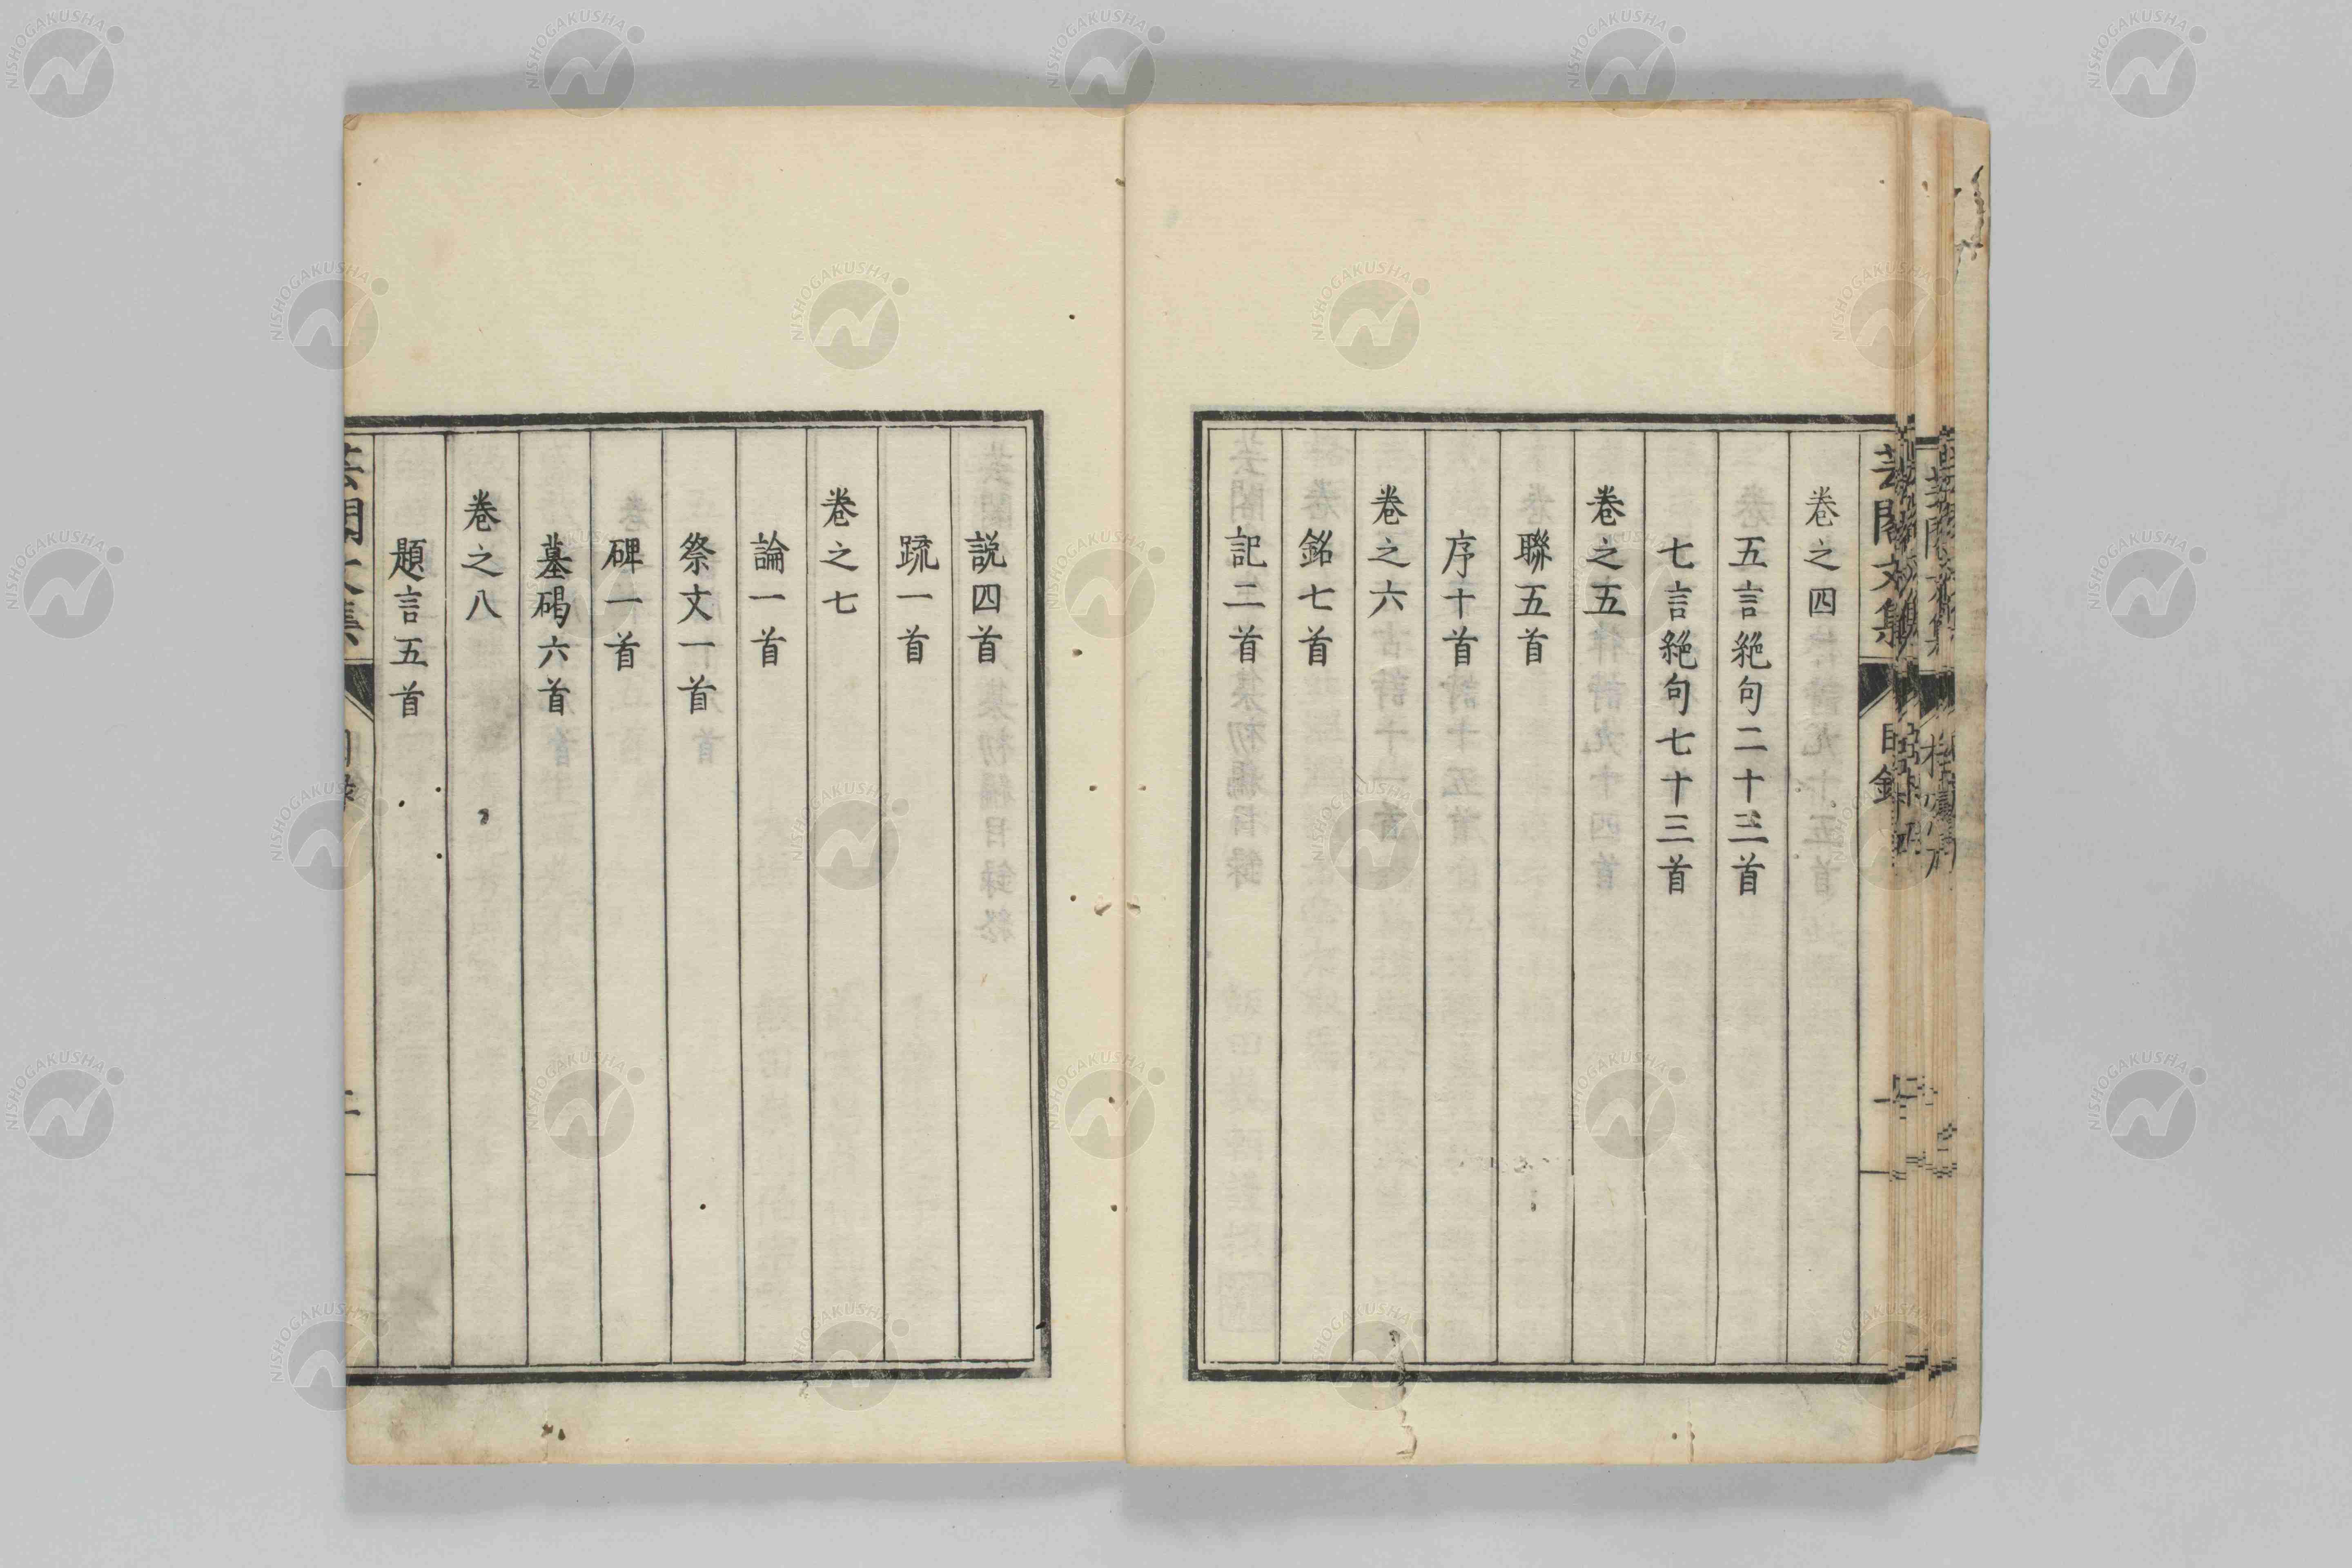 芸閣文集
目録
一
卷之四
五言絶句二十三首
七言絶句七十三首
卷之五
聯五首
序十首
卷之六
銘七首
記二首
説四首
䟽一首
卷之七
論一首
祭文一首
碑一首
墓碣六首
卷之八
題言五首
NISHOGAKUSHA